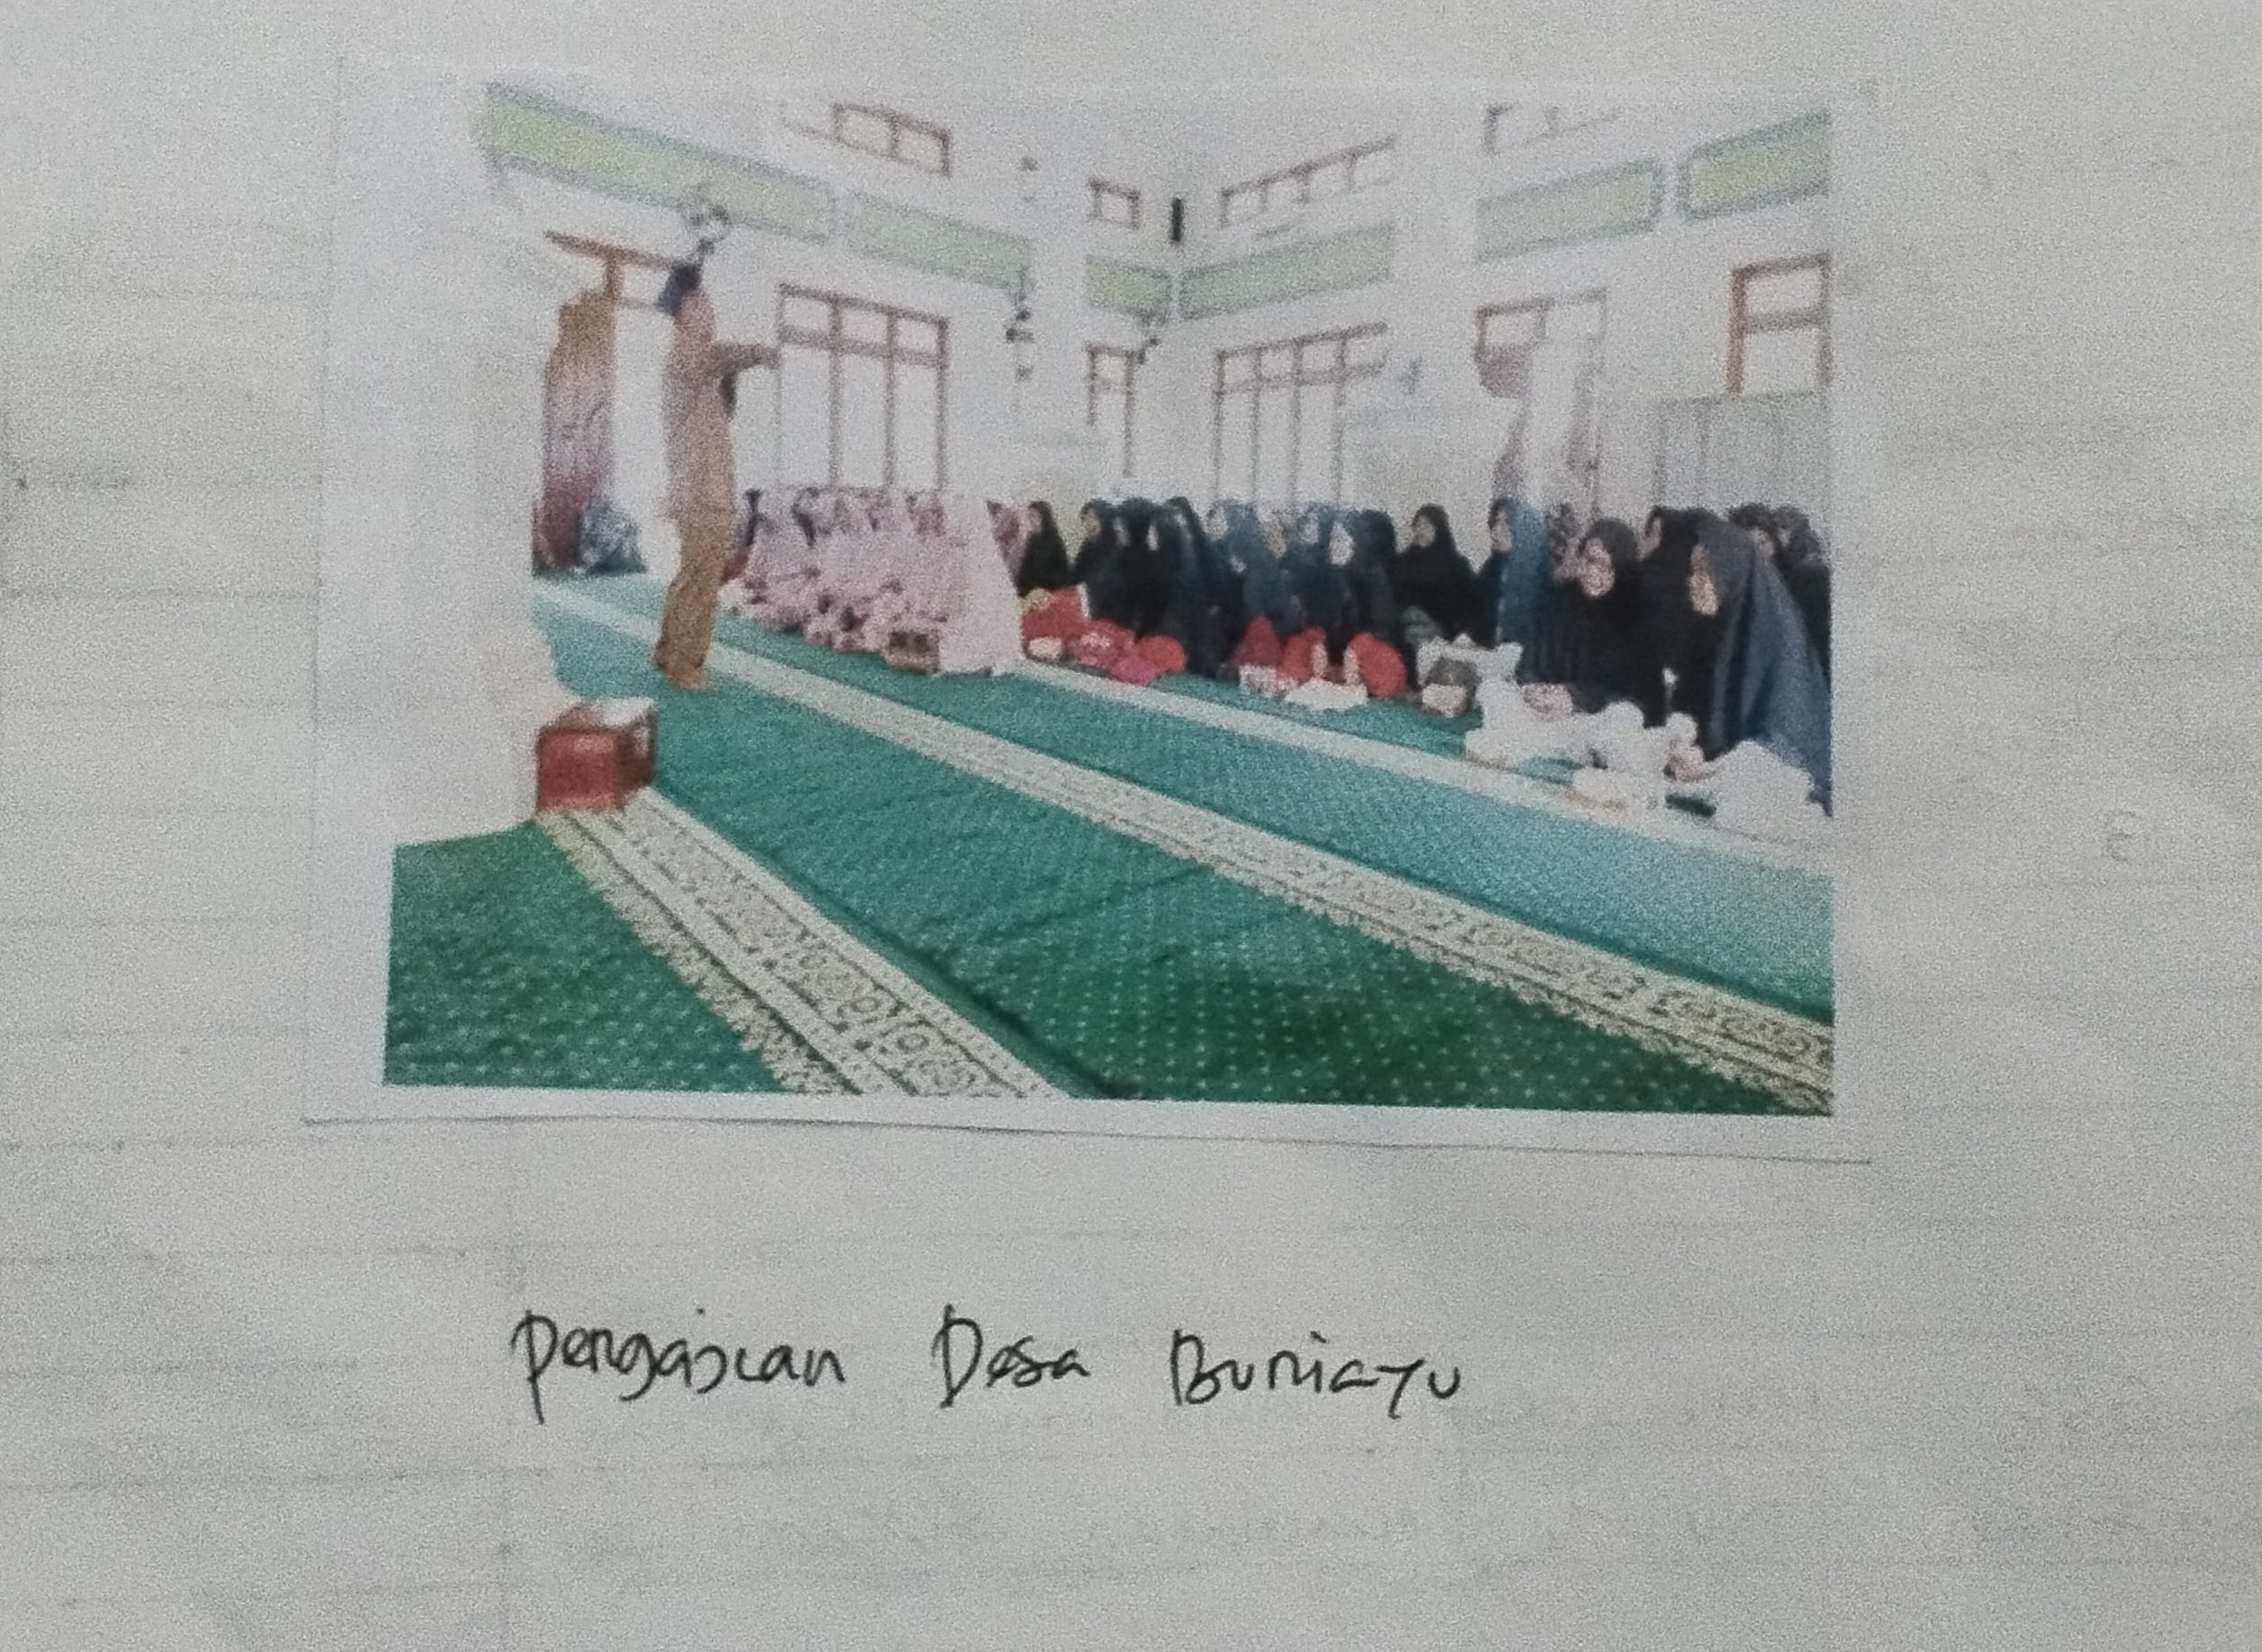 Pengajian Desa Buniayu